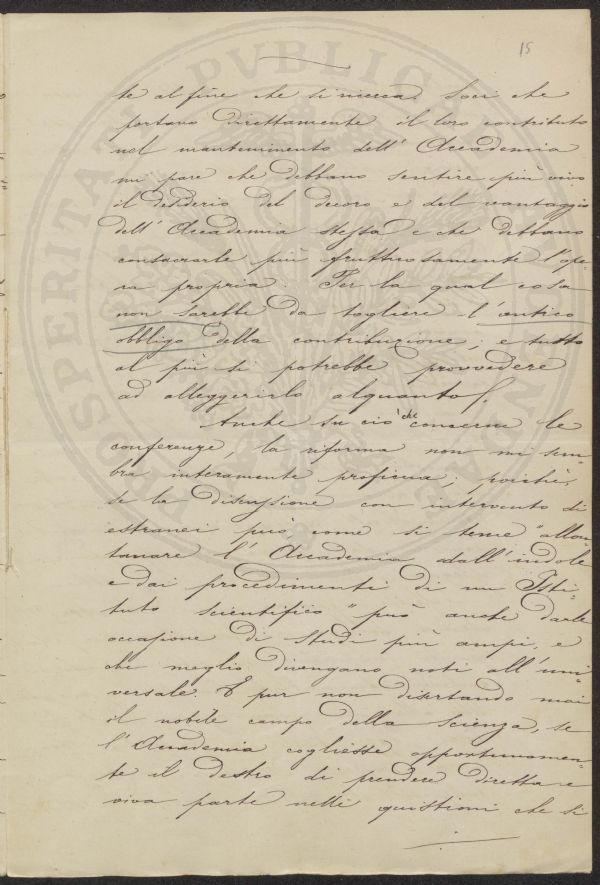 15
te al fine che si ricerca. Soci che
portano direttamente il loro contributo
nel mantenimento dell' Accademia
mi pare che debbano sentire più vivo
il desiderio del decoro e del vantaggio
dell' Accademia stessa e che debbano
consacrarle più fruttuosamente l'ope-
ra propria. Per la qual cosa
non sarebbe da togliere l'antico
obbligo della contribuzione; e tutto
al più si potrebbe provvedere
ad alleggerirlo alquanto.
Anche su ciò che concerne le
conferenze, la riforma non mi sem-
bra interamente proficua; poichè,
se la discussione con intervento di
estranei può come si teme "allon-
tanare l' Accademia dall'indole
e dai procedimenti di un Isti-
tuto scientifico" può anche darle
occasione di studi più ampi, e
che meglio divengano noti all'uni-
versale. E pur non disertando mai
il nobile campo della scienza, se
l' Accademia cogliesse opportunamen-
te il destro di prendere diretta e
viva parte nelle quistioni che si
PROSPERITATI PVBLICAE